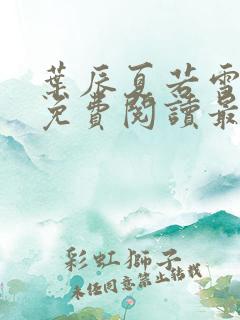 葉辰夏若雪
免費閱讀最
彩虹獅子
未经同意禁止转载